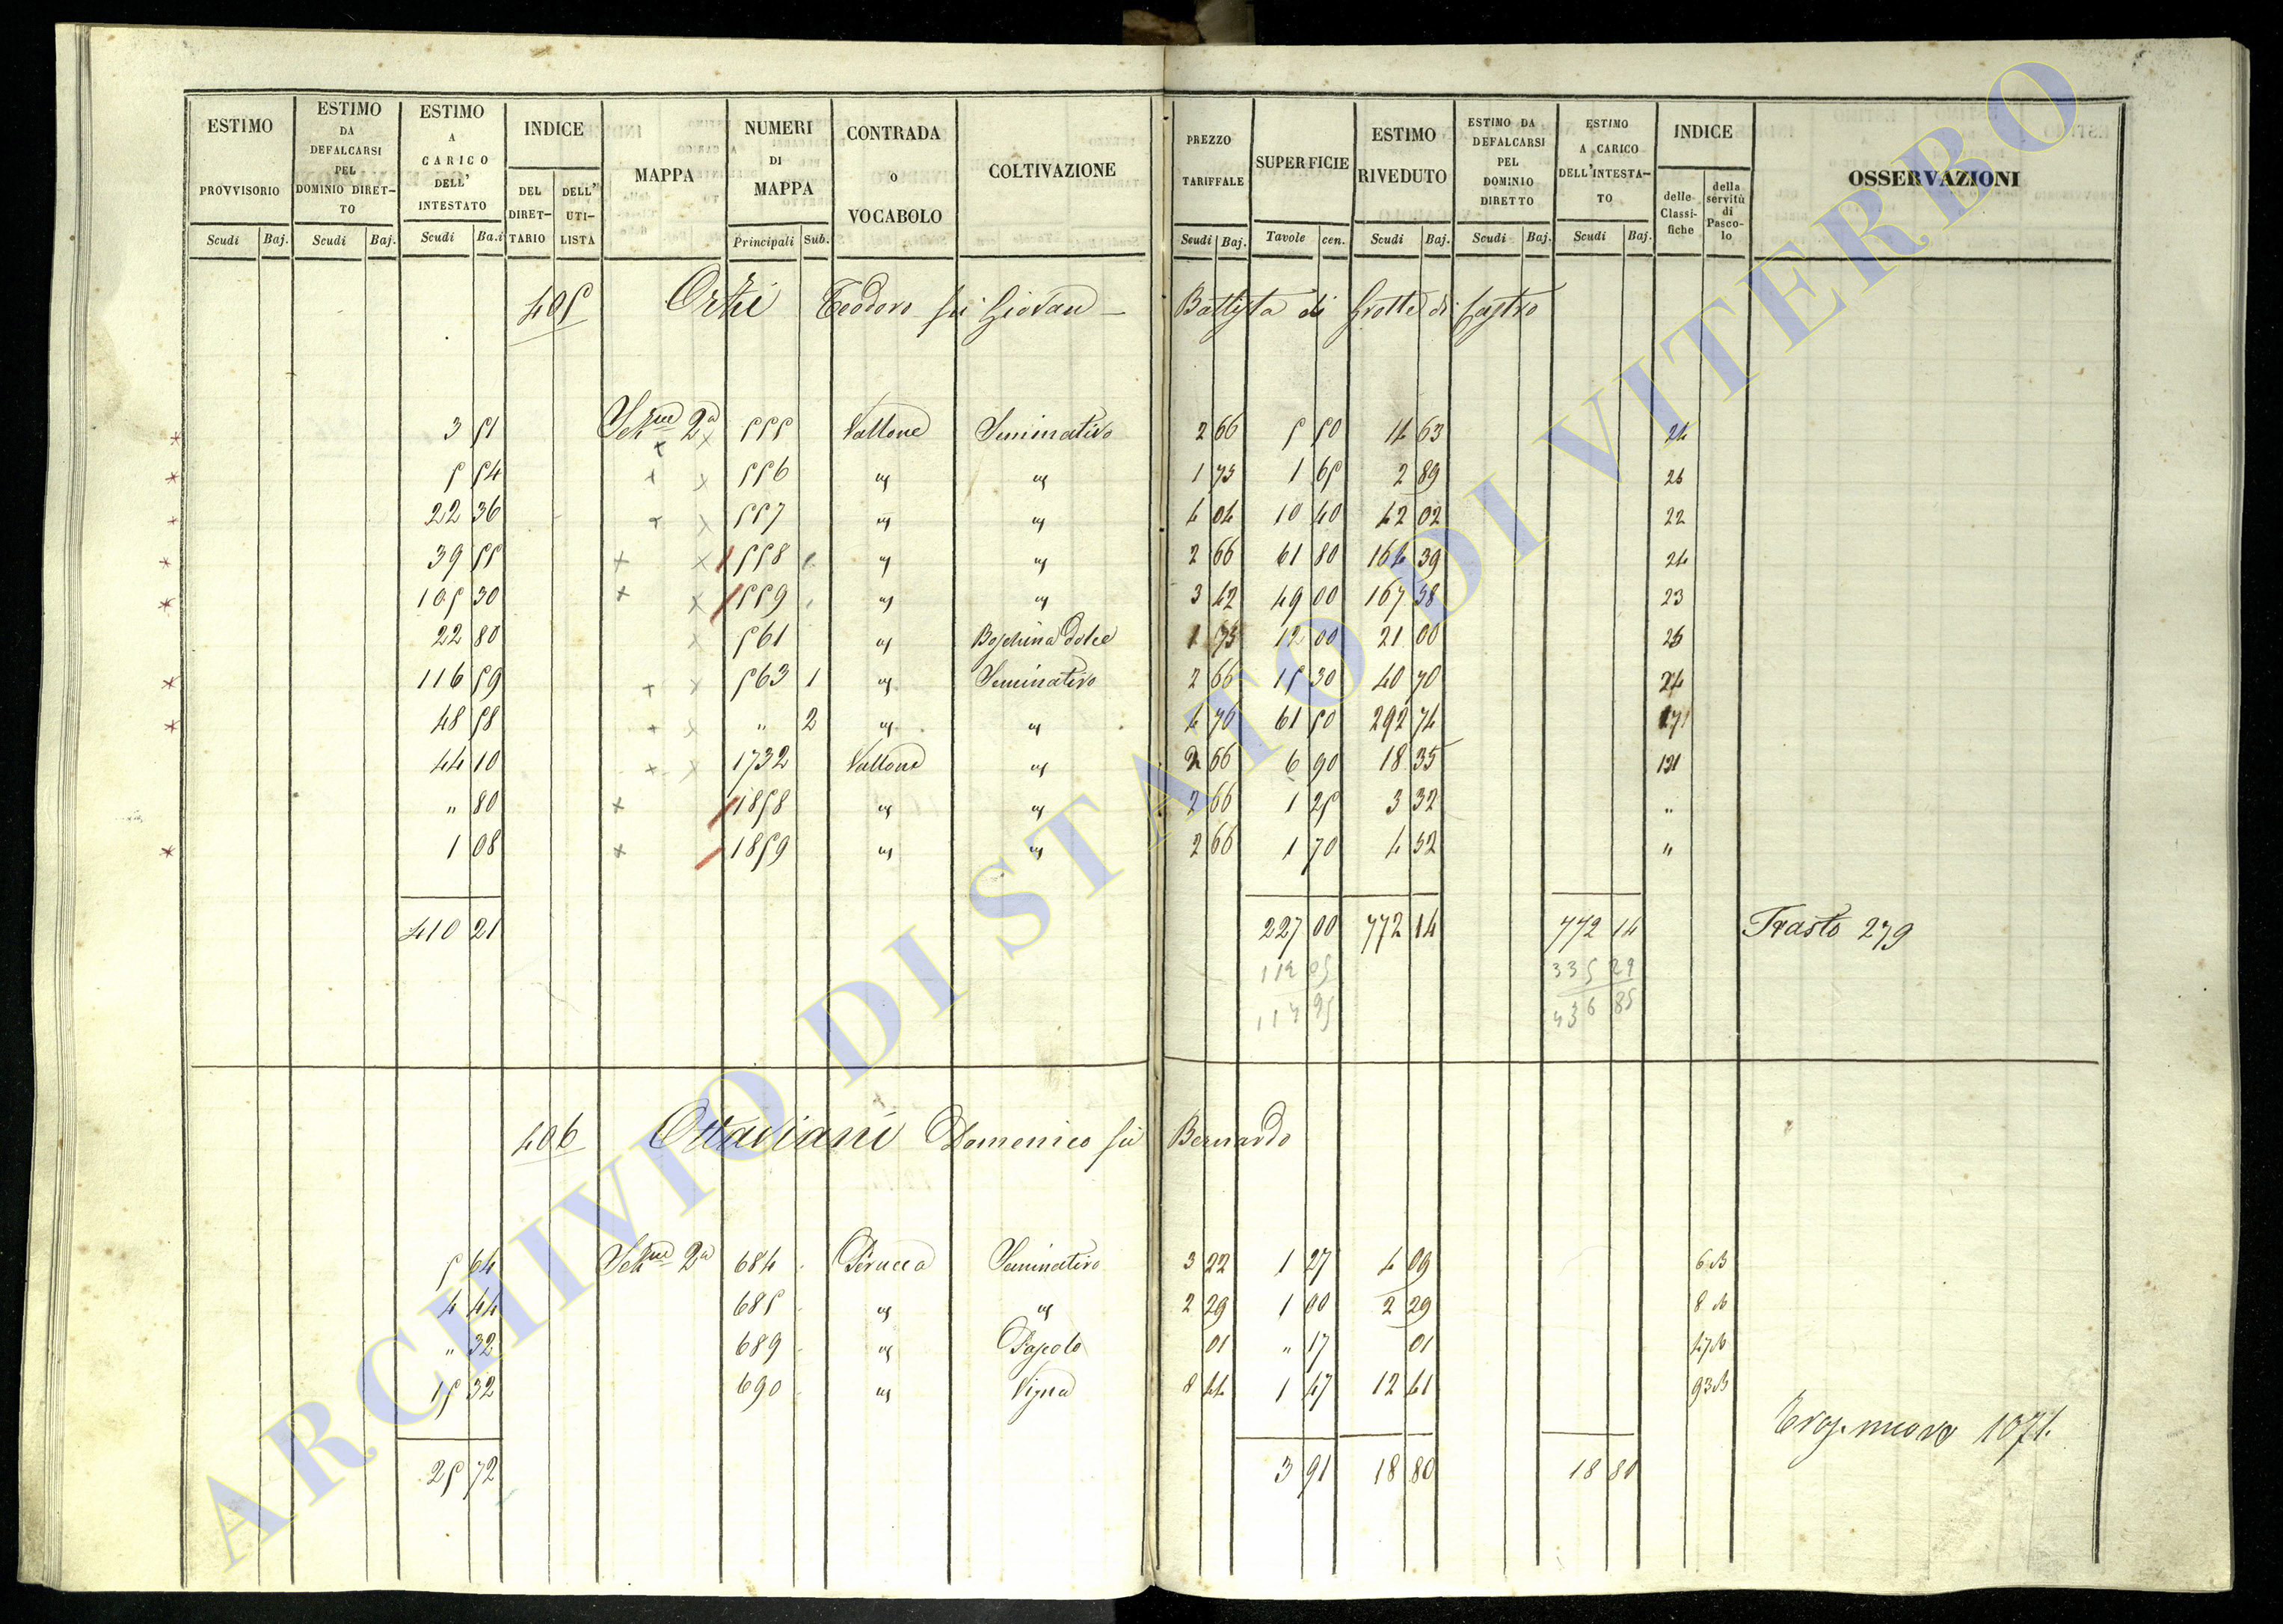 ESTIMO PROVVISORIO Scudi Baj.
ESTIMO DA DEFALCARSI PEL DOMINIO DIRETTO Scudi Baj.
ESTIMO A CARICO DELL' INTESTATO Scudi Ba.i
INDICE DEL DIRETTARIO DELL' UTILISTA
MAPPA
NUMERI DI MAPPA Principali Sub.
CONTRADA O VOCABOLO
COLTIVAZIONE
PREZZO TARIFFALE Scudi Baj.
SUPERFICIE Tavole cen.
ESTIMO RIVEDUTO Scudi Baj.
ESTIMO DA DEFALCARSI PEL DOMINIO DIRETTO Scudi Baj.
ESTIMO A CARICO DELL'INTESTATO Scudi Baj.
INDICE delle Classifiche della servitù di Pascolo
OSSERVAZIONI
405 Orzi Teodoro fu Giovan– Battista di Grotte di Castro
3 51 Sezne 2a 555 Vallone Seminativo 2 66 5 50 14 63 24
5 54 556 " " 1 75 1 65 2 89 26
22 36 557 " " 4 04 10 40 42 02 22
39 55 558 " " 2 66 61 80 164 39 24
105 30 559 " " 3 42 49 00 167 58 23
22 80 561 " Boschina dolce 1 75 12 00 21 00 26
116 59 563 1 " Seminativo 2 66 15 30 40 70 24
48 58 " 2 " " 4 76 61 50 292 74
44 10 1732 Vallone " 2 66 6 90 18 35 131
" 80 1858 " " 2 66 1 25 3 32 "
1 08 1859 " " 2 66 1 70 4 52 "
410 21 227 00 772 14 772 14 Trasto 279
112 05 335 29
114 95 436 85
406 Ottaviani Domenico fu Bernardo
5 64 Sezne 2a 684 Perucca Seminativo 3 22 1 27 4 09 6 B
4 44 685 " " 2 29 1 00 2 29 8 B
" 32 689 " Pascolo 01 " 17 01 47 B
15 32 690 " Vigna 8 44 1 47 12 41 93 B
25 72 3 91 18 80 18 80 nuovo 1071.
ARCHIVIO DI STATO DI VITERBO